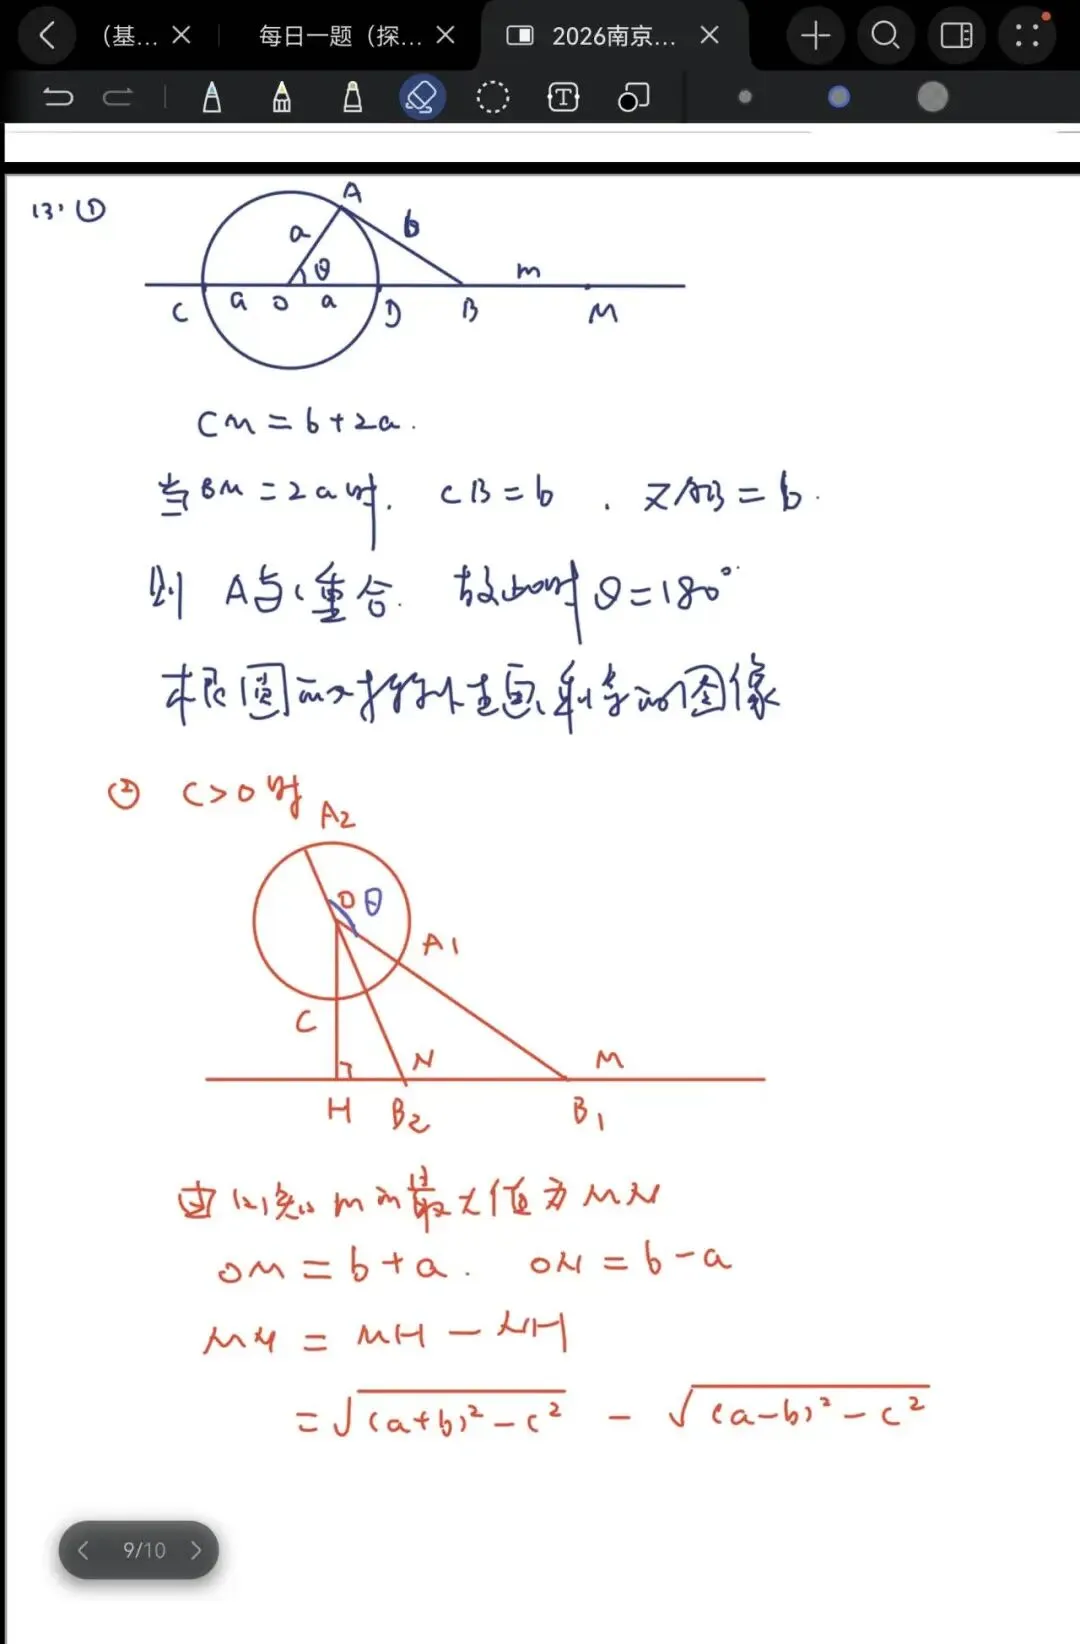 (基... ×
每日一题（探... ×
2026南京... ×
13. ①
A
a
b
θ
m
C
a
O
a
D
B
M
CM = b + 2a.
当BM = 2a时. CB = b . 又AB = b.
则 A与C重合. 故此时 θ = 180°
根据圆的对称性画剩余的图像
② C > 0 时
A2
O θ
A1
C
N
M
H
B2
B1
由(2)知 m的最大值为 MN
OM = b + a. ON = b - a
MN = MH - NH
= √(a+b)² - c² - √(a-b)² - c²
9/10